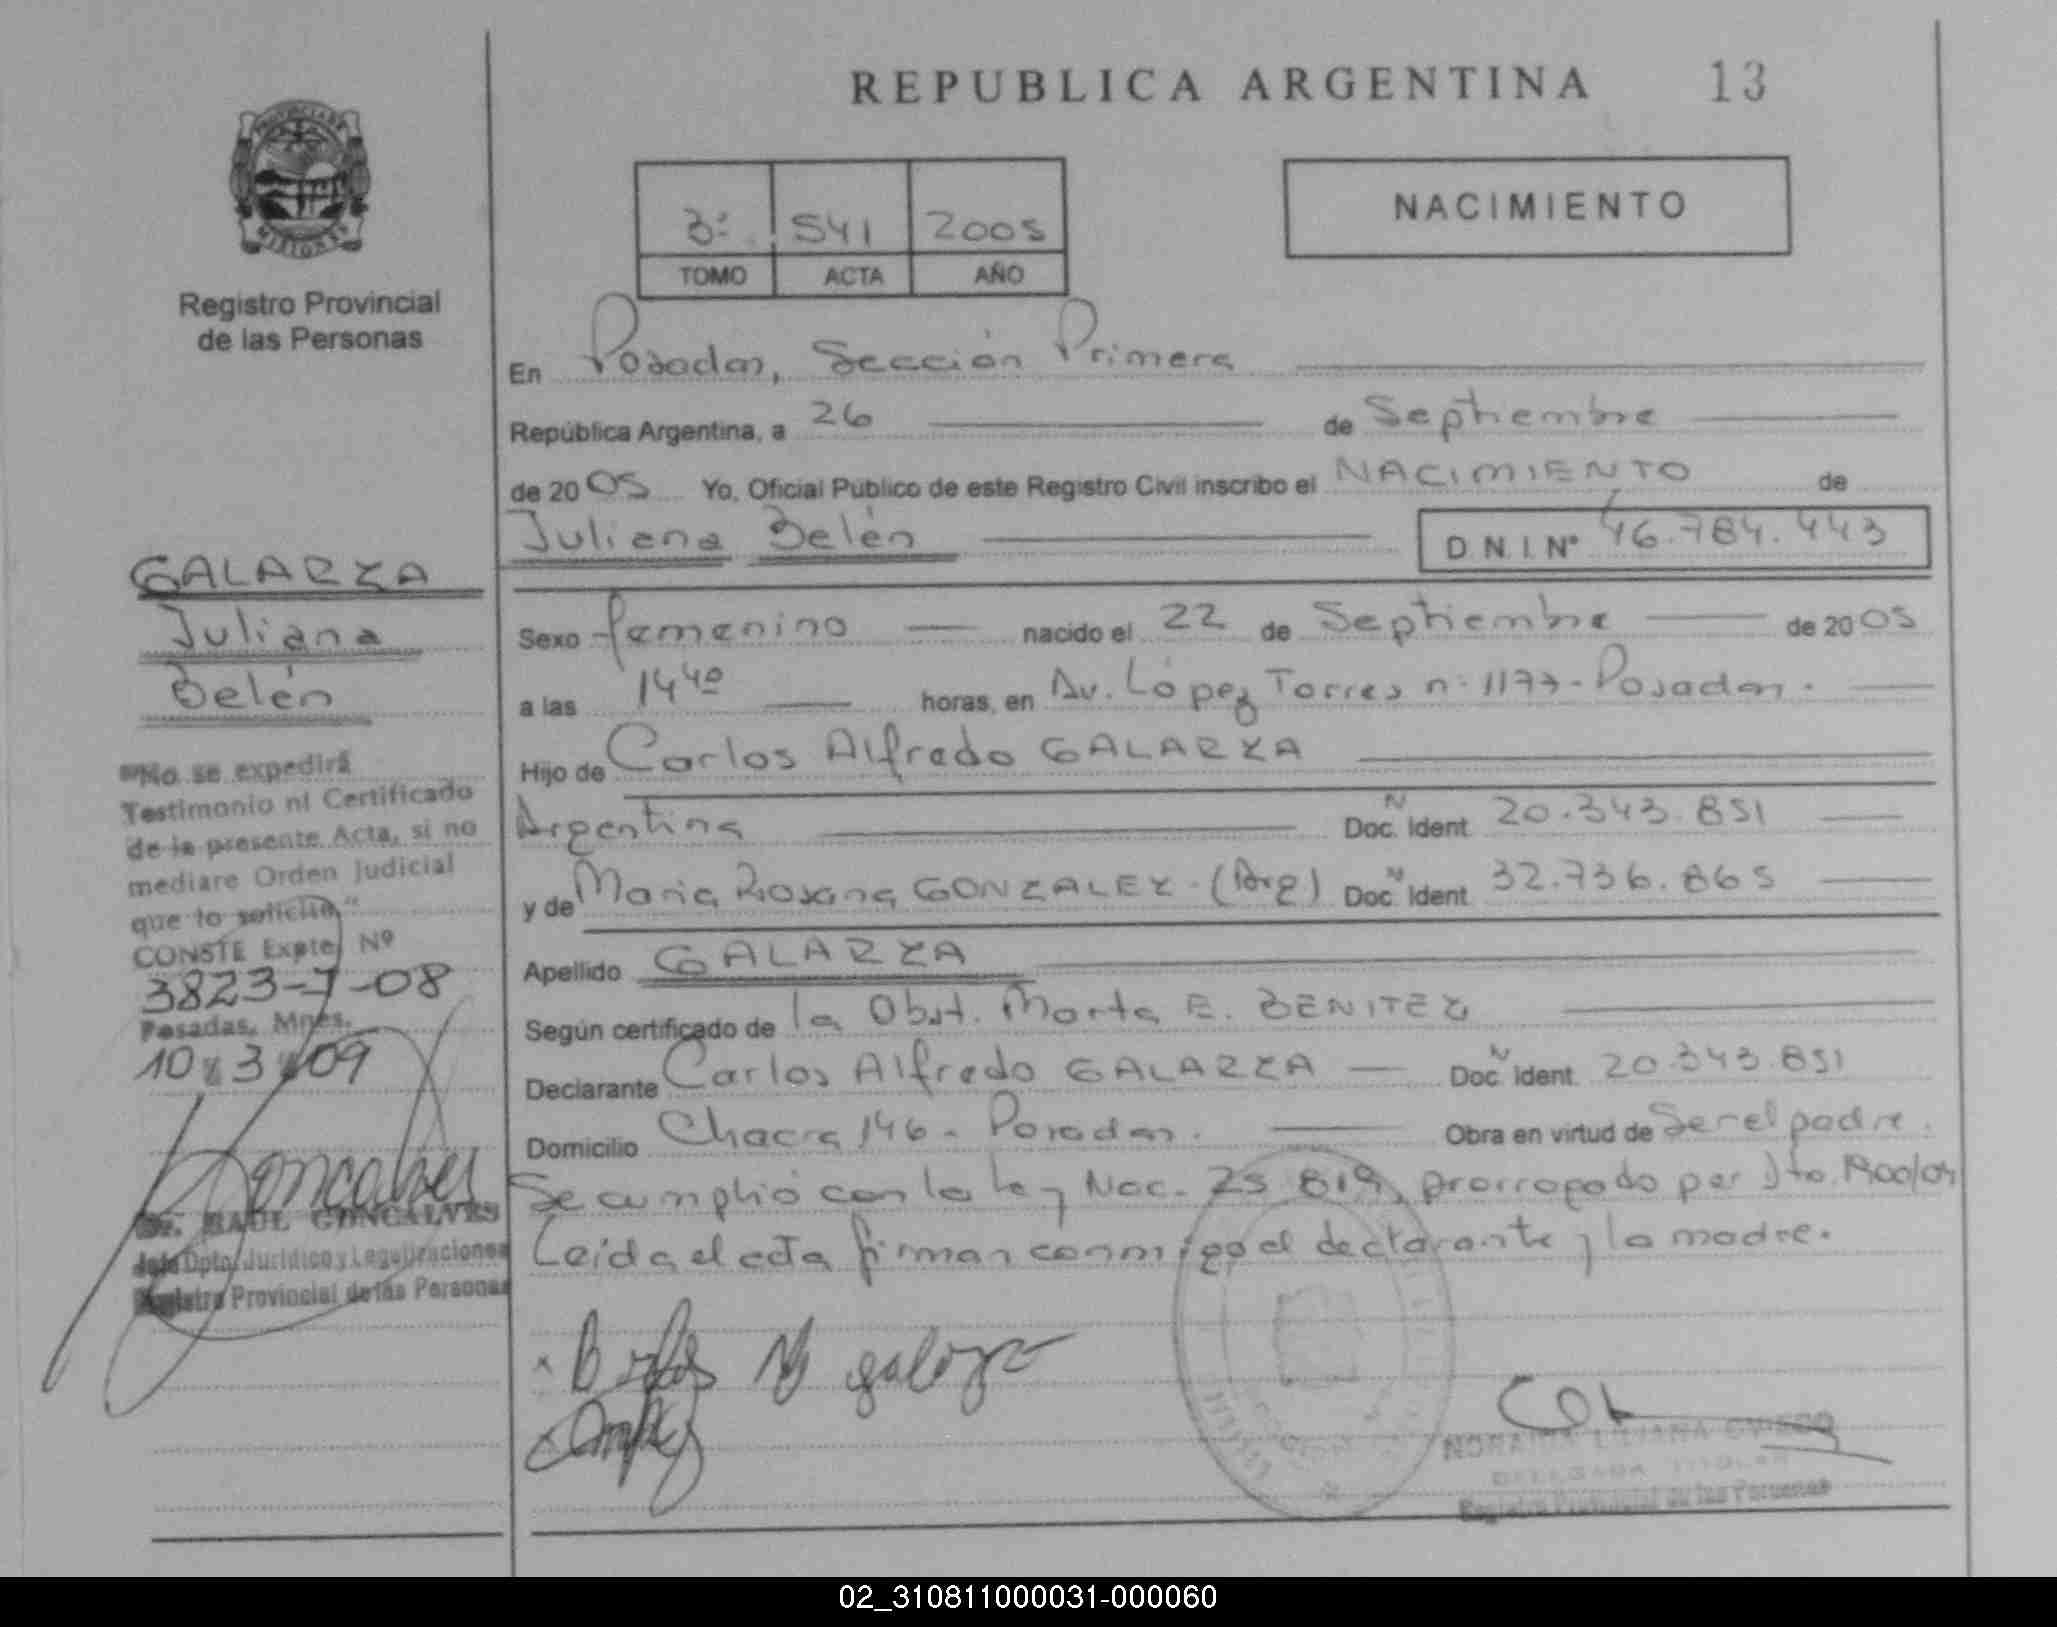 REPUBLICA ARGENTINA 13
PROVINCIA DE
MISIONES
Registro Provincial
de las Personas
NACIMIENTO
3º 541 2005
TOMO ACTA AÑO
En Posadas, Sección Primera
República Argentina, a 26 de Septiembre
de 2005 Yo, Oficial Público de este Registro Civil inscribo el NACIMIENTO de
Juliana Belén D.N.I. Nº 46.784.443
Sexo femenino nacido el 22 de Septiembre de 2005
a las 14⁴⁰ horas, en Av. López Torres nº 1177 - Posadas.
Hijo de Carlos Alfredo GALARZA
Argentina Doc. Ident. N 20.343.851
y de Maria Roxana GONZALEZ - (Arg) Doc. Ident. N 32.736.865
Apellido GALARZA
Según certificado de la Obst. Marta E. BENITEZ
Declarante Carlos Alfredo GALARZA Doc. Ident. N 20.343.851
Domicilio Chacra 146 - Posadas. Obra en virtud de Ser el padre.
Se cumplió con la ley Nac. 25 819, prorrogado por Dto.
Leída el acta firman conmigo el declarante y la madre.
GALARZA
Juliana
Belén
"No se expedirá
Testimonio ni Certificado
de la presente Acta, si no
mediare Orden Judicial
que lo solicite"
CONSTE Expte. Nº
3823-J-08
Posadas, Mnes.
10 3 09
Goncalves
Dr. RAUL GONCALVES
Jefe Dpto. Jurídico y Legalizaciones
Registro Provincial de las Personas
galarza
NORAIDA LILIANA OVIEDO
DELEGADA TITULAR
Registro Provincial de las Personas
02_310811000031-000060